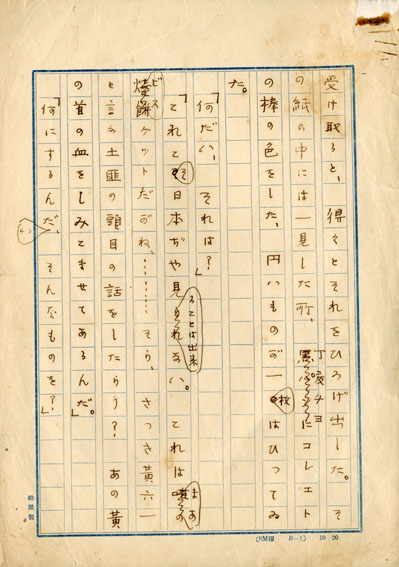 受け取ると、得々とそれをひろげ出した。そ
の紙の中には一見した所、丁度チヨコレエト
の棒の色をした、円いものが一枚はひつてゐ
た。
「何だい、それは?」
「これこそ日本ぢや見ることは出来ない。これはまあ
ビスケットだがね、………そら、さつき黄六一
と言ふ土匪の頭目の話をしたらう? あの黄
の首の血をしみこませてあるんだ。」
「何にするんだい、そんなものを?」
松屋製
(SM印 B-1) 10 20